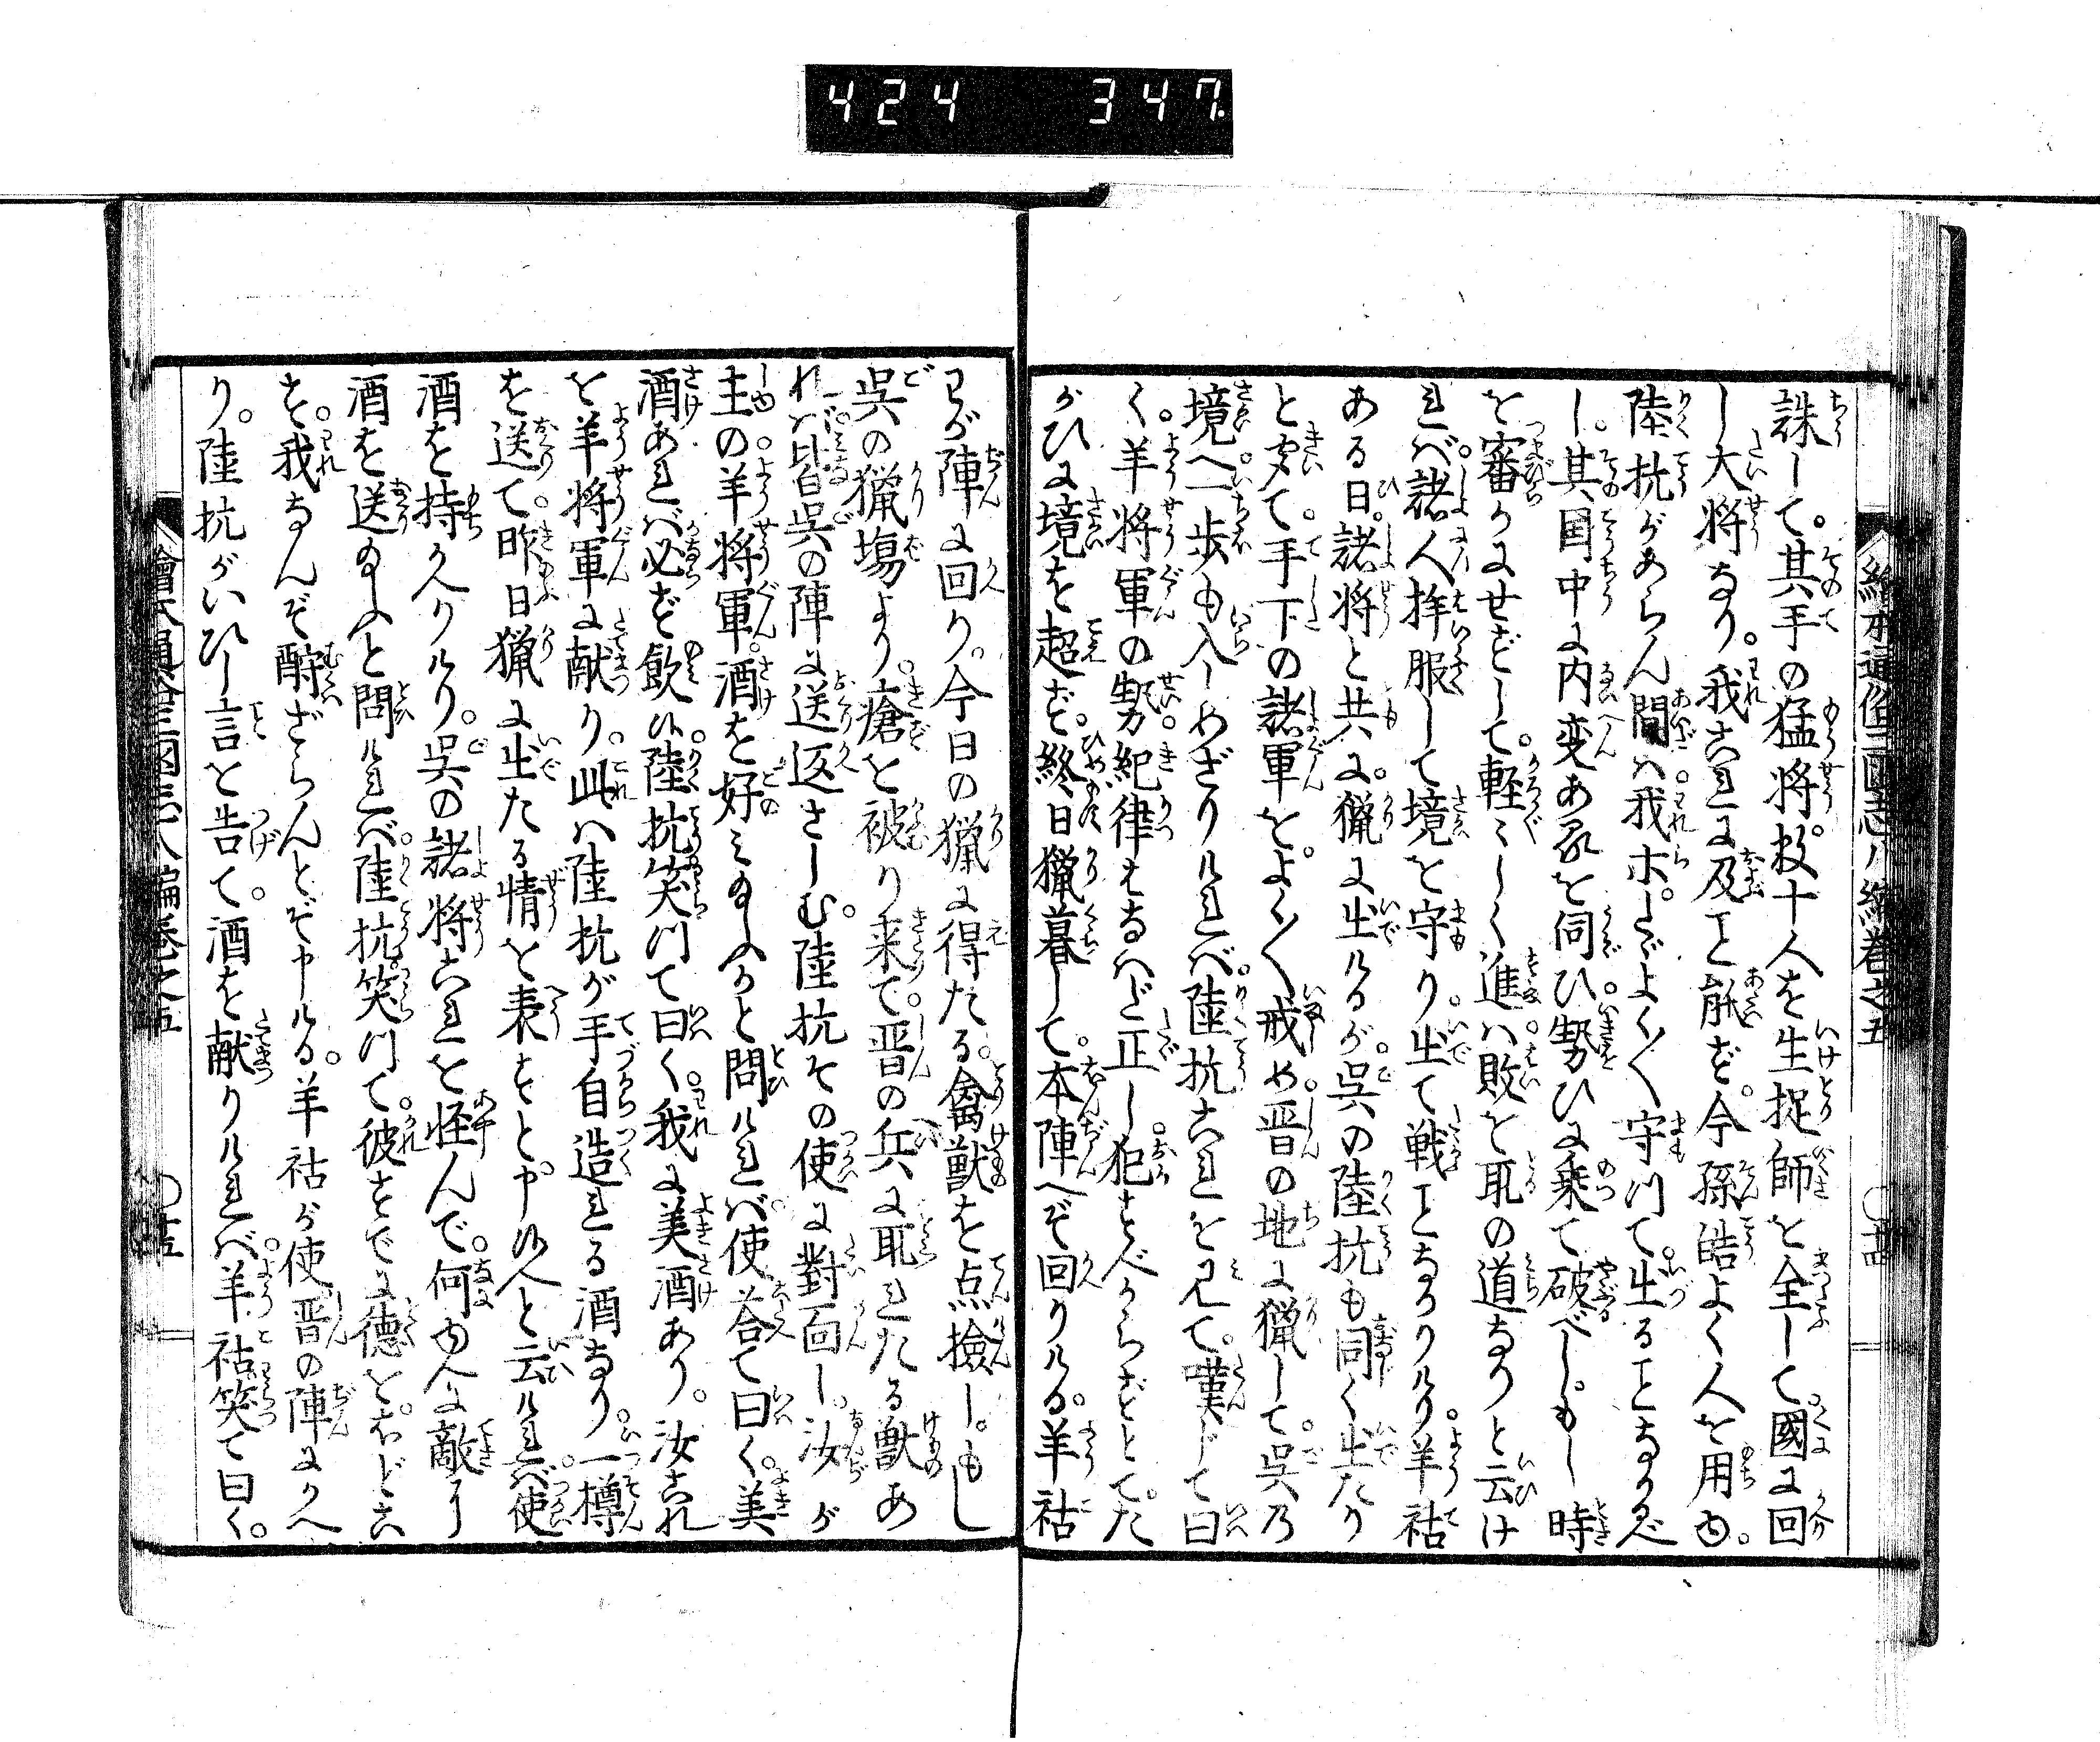 424 347
繪本通俗三國志八編巻之五
誅して。其手の猛将。数十人を生捉師を全して國に回
し大将なり。我これに及こと能ず。今孫皓よく人を用ゆ。
陸抗があらん間ハ我ホ。たゞよく〳〵守つて。出ることなかれ
し。其国中に内変あるを伺ひ。勢ひに乗て破べし。もし時
を審かにせずして。軽〻しく進ハ敗を取の道なりと云け
れバ。諸人拝服して境を守り。出て戦ことなかりけり。羊祜
ある日。諸将と共に。猟に出けるが。呉の陸抗も同く出たり
と聞て。手下の諸軍を。よく〳〵戒め。晋の地に猟して。呉乃
境へ。一歩も入しめざりけれバ。陸抗これを見て。嘆じて曰
く。羊将軍の勢。紀律あるハど正し。犯すべからずとて。た
がひに境を超ず。終日猟暮して。本陣へぞ回りける。羊祜
わが陣に回り。今日の猟に得たる。禽獣を点撿し。もし
呉の猟場より。瘡を被り来て。晋の兵に取れたる獣あ
れバ。皆呉の陣に送返さしむ。陸抗その使に對面し。汝が
主の羊将軍。酒を好み玉ふかと問けれバ。使荅て曰く。美
酒あれバ必ず飲ひ。陸抗笑つて曰く。我に美酒あり。汝これ
を羊将軍に献り。此ハ陸抗が手自造れる酒なり。一樽
を送て。昨日猟に出たる情を表すと。申せと云けれバ。使
酒を持かへりけり。呉の諸将これを怪んで。何ゆへに敵に
酒を送玉ふと問けれバ。陸抗笑つて。彼すでに徳を。ほどこ
す。我なんぞ酧ざらんとぞ申ける。羊祜が使。晋の陣にかへ
り。陸抗がいひし言を告て。酒を献りけれバ。羊祜笑て曰く。
繪本通俗三國志八編巻之五